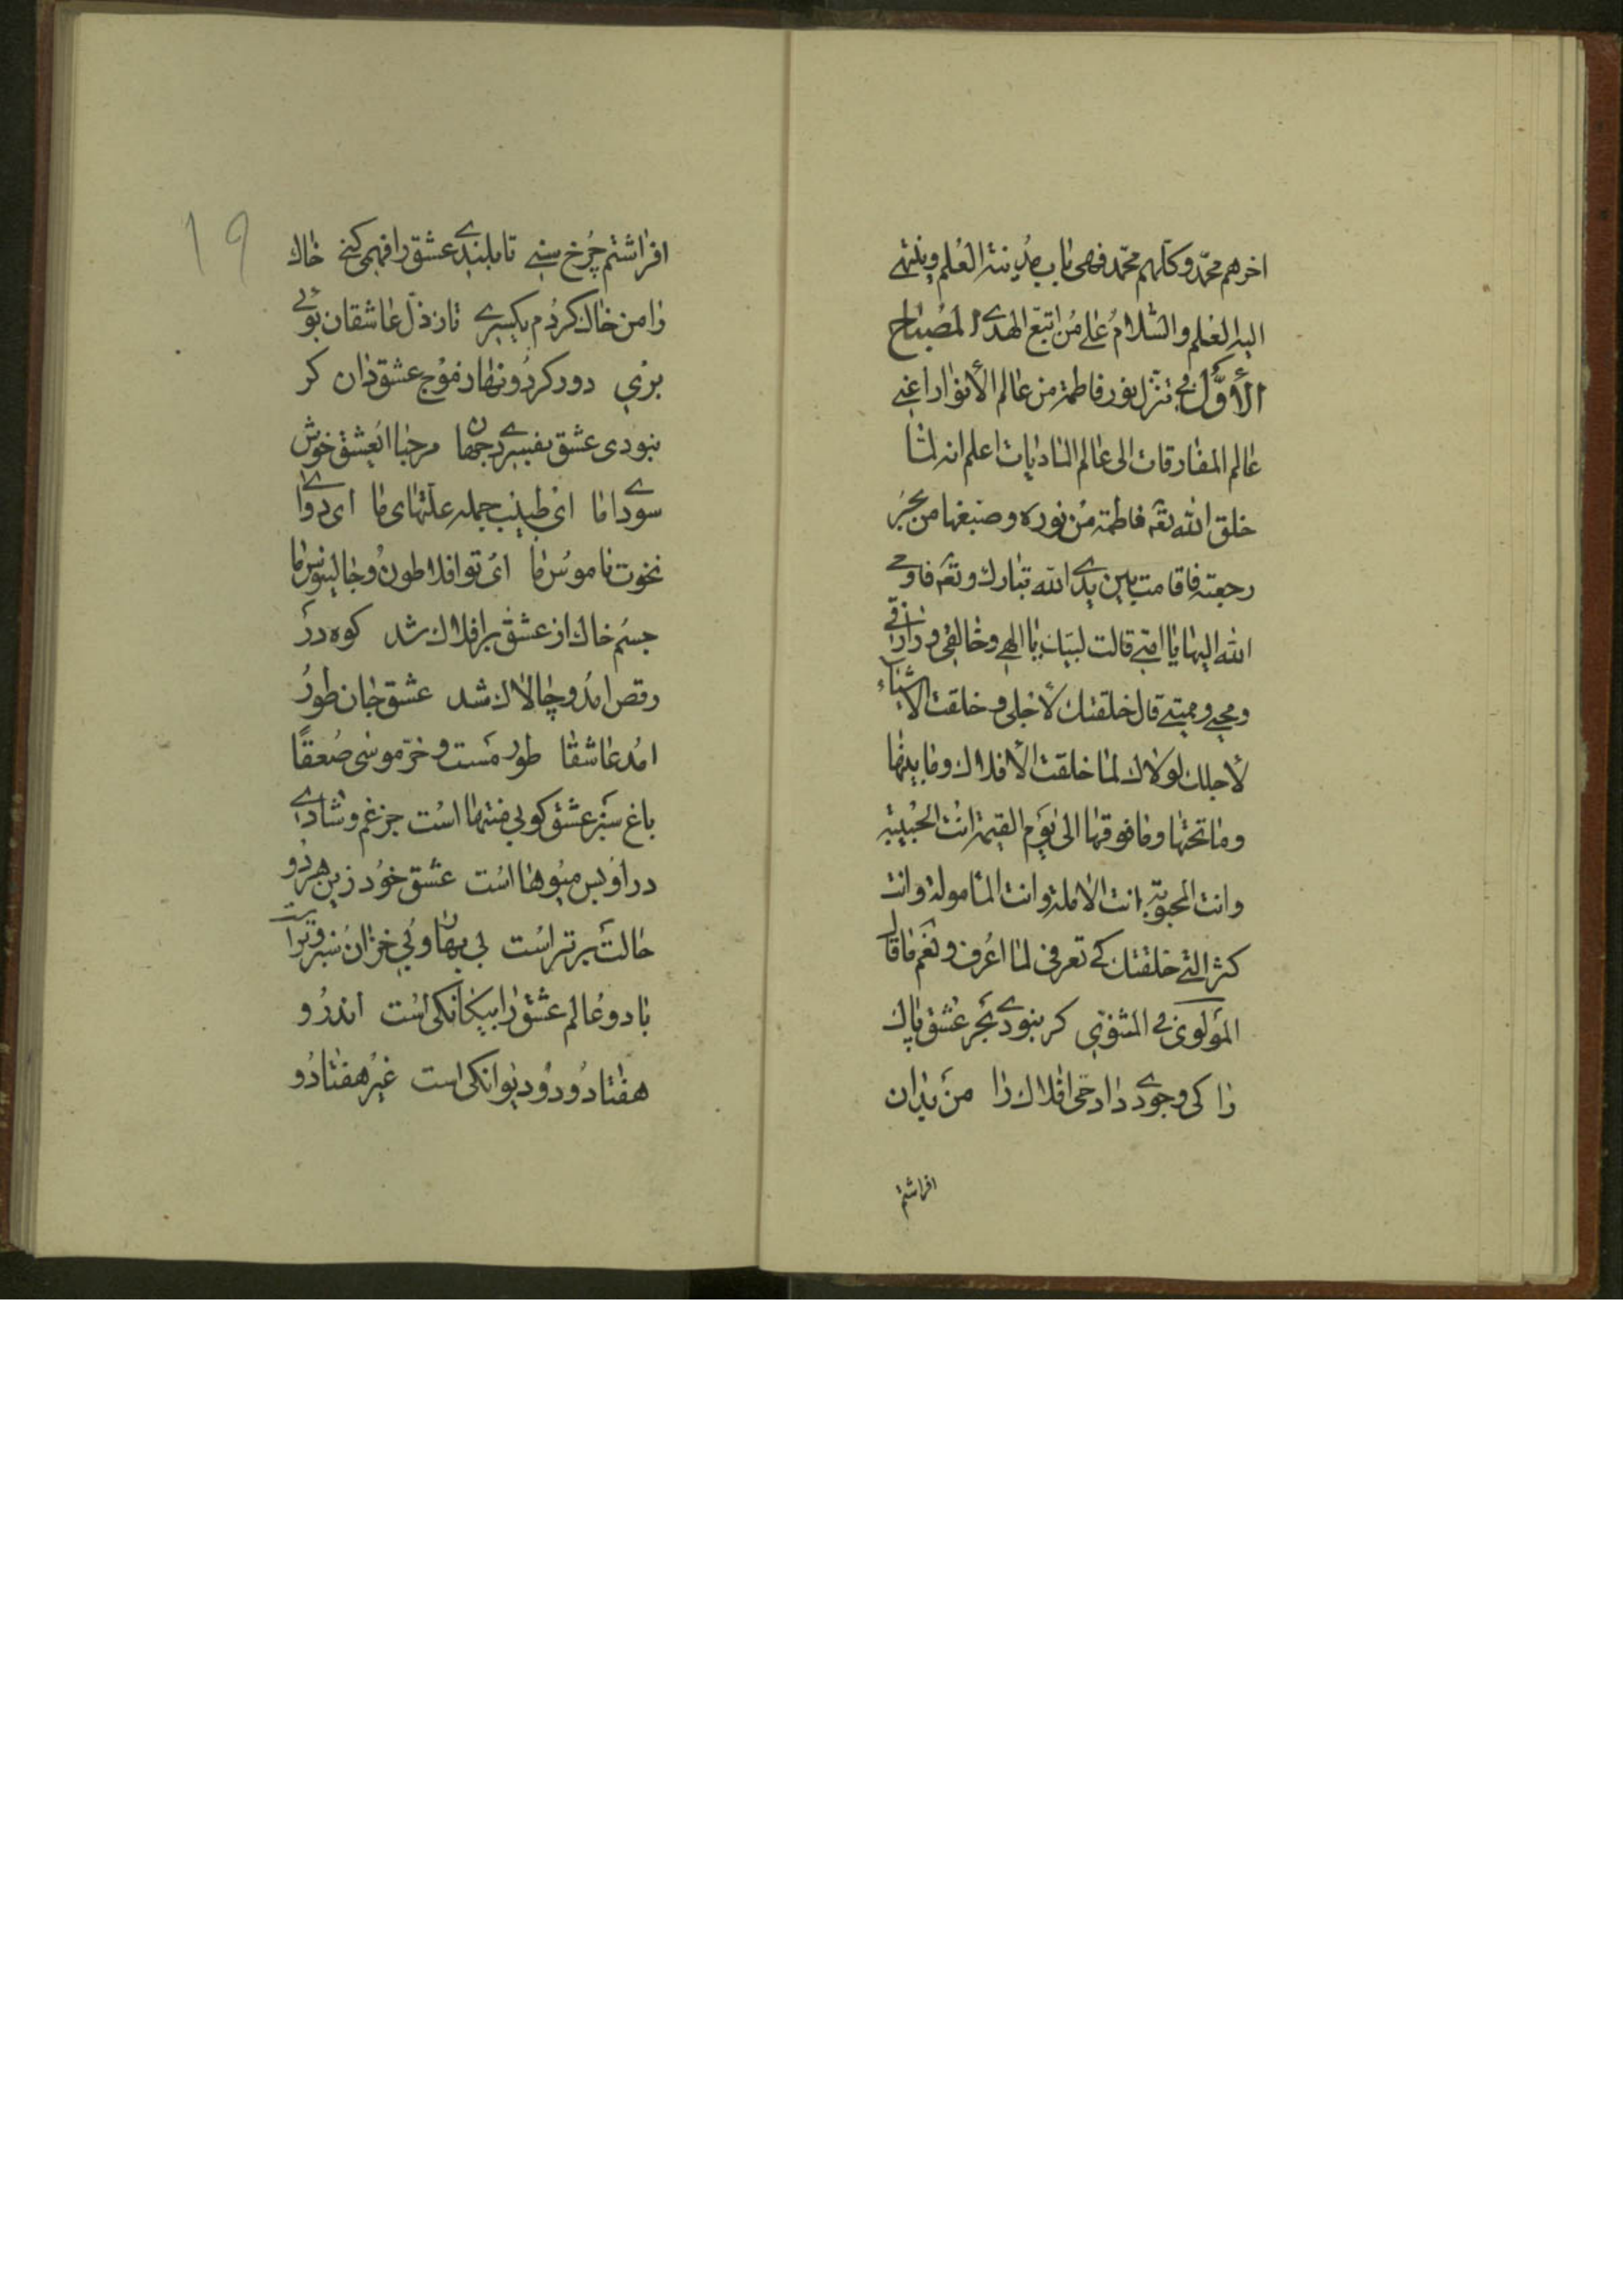 اخرهم محمّد و كلّهم محمّد فهى باب مدينة العلم وينتهى
اليه العلم والسّلام على من اتبع الهدى المصباح
الأوّل فى تنزّل نور فاطمة من عالم الأنوار اعنى
عالم المفارقات الى عالم الماديات اعلم انه لمّا
خلق الله تعه فاطمة من نوره و صبغها من بحر
رحمته فاقامت بين يدى الله تبارك و تعه فاوحى
الله اليها يا امتى قالت لبيك يا الهى و خالقى و رازقى
و محيى و مميتى قال خلقتك لأجلى و خلقت الاشياء
لأجلك لولاك لما خلقت الأفلاك و ما بينها
و ما تحتها و ما فوقها الى يوم القيمة انت الحبيبة
وانت المحبوبة انت الاملة و انت المأمولة و انت
كنز التى خلقتك كى تعرفى لما اعرف و نعم ما قال
المولوى فى المثنوى كر نبودى بحر عشق پاك
را كى وجودى دادمى افلاك را من بدان
افراشتم
19
افراشتم چرخ سنى تا بلندى عشق را فهمى كنى خاك
را من خاك كردم يكسرى تا ز ذلّ عاشقان بوئى
برى دور كردونها ز موج عشق دان كر
نبودى عشق بفسردى جهان مرحبا ايعشق خوش
سوداى ما اى طبيب جمله علّتهاى ما اى دواى
نخوت ناموس ما اى تو افلاطون و جالينوس ما
جسم خاك از عشق بر افلاك شد كوه در
رقص امد و چالاك شد عشق جان طور
امد عاشقا طور مست و خرّ موسى صعقا
باغ سبز عشق كو بى منتها است جز غم و شادى
در او بس ميوها است عشق خود زين هر دو
حالت برتر است بى بهار و بى خزان سبز و تر است
با دو عالم عشق را بيكانكى است اندر و
هفتاد و دو ديوانكى است غير هفتاد و